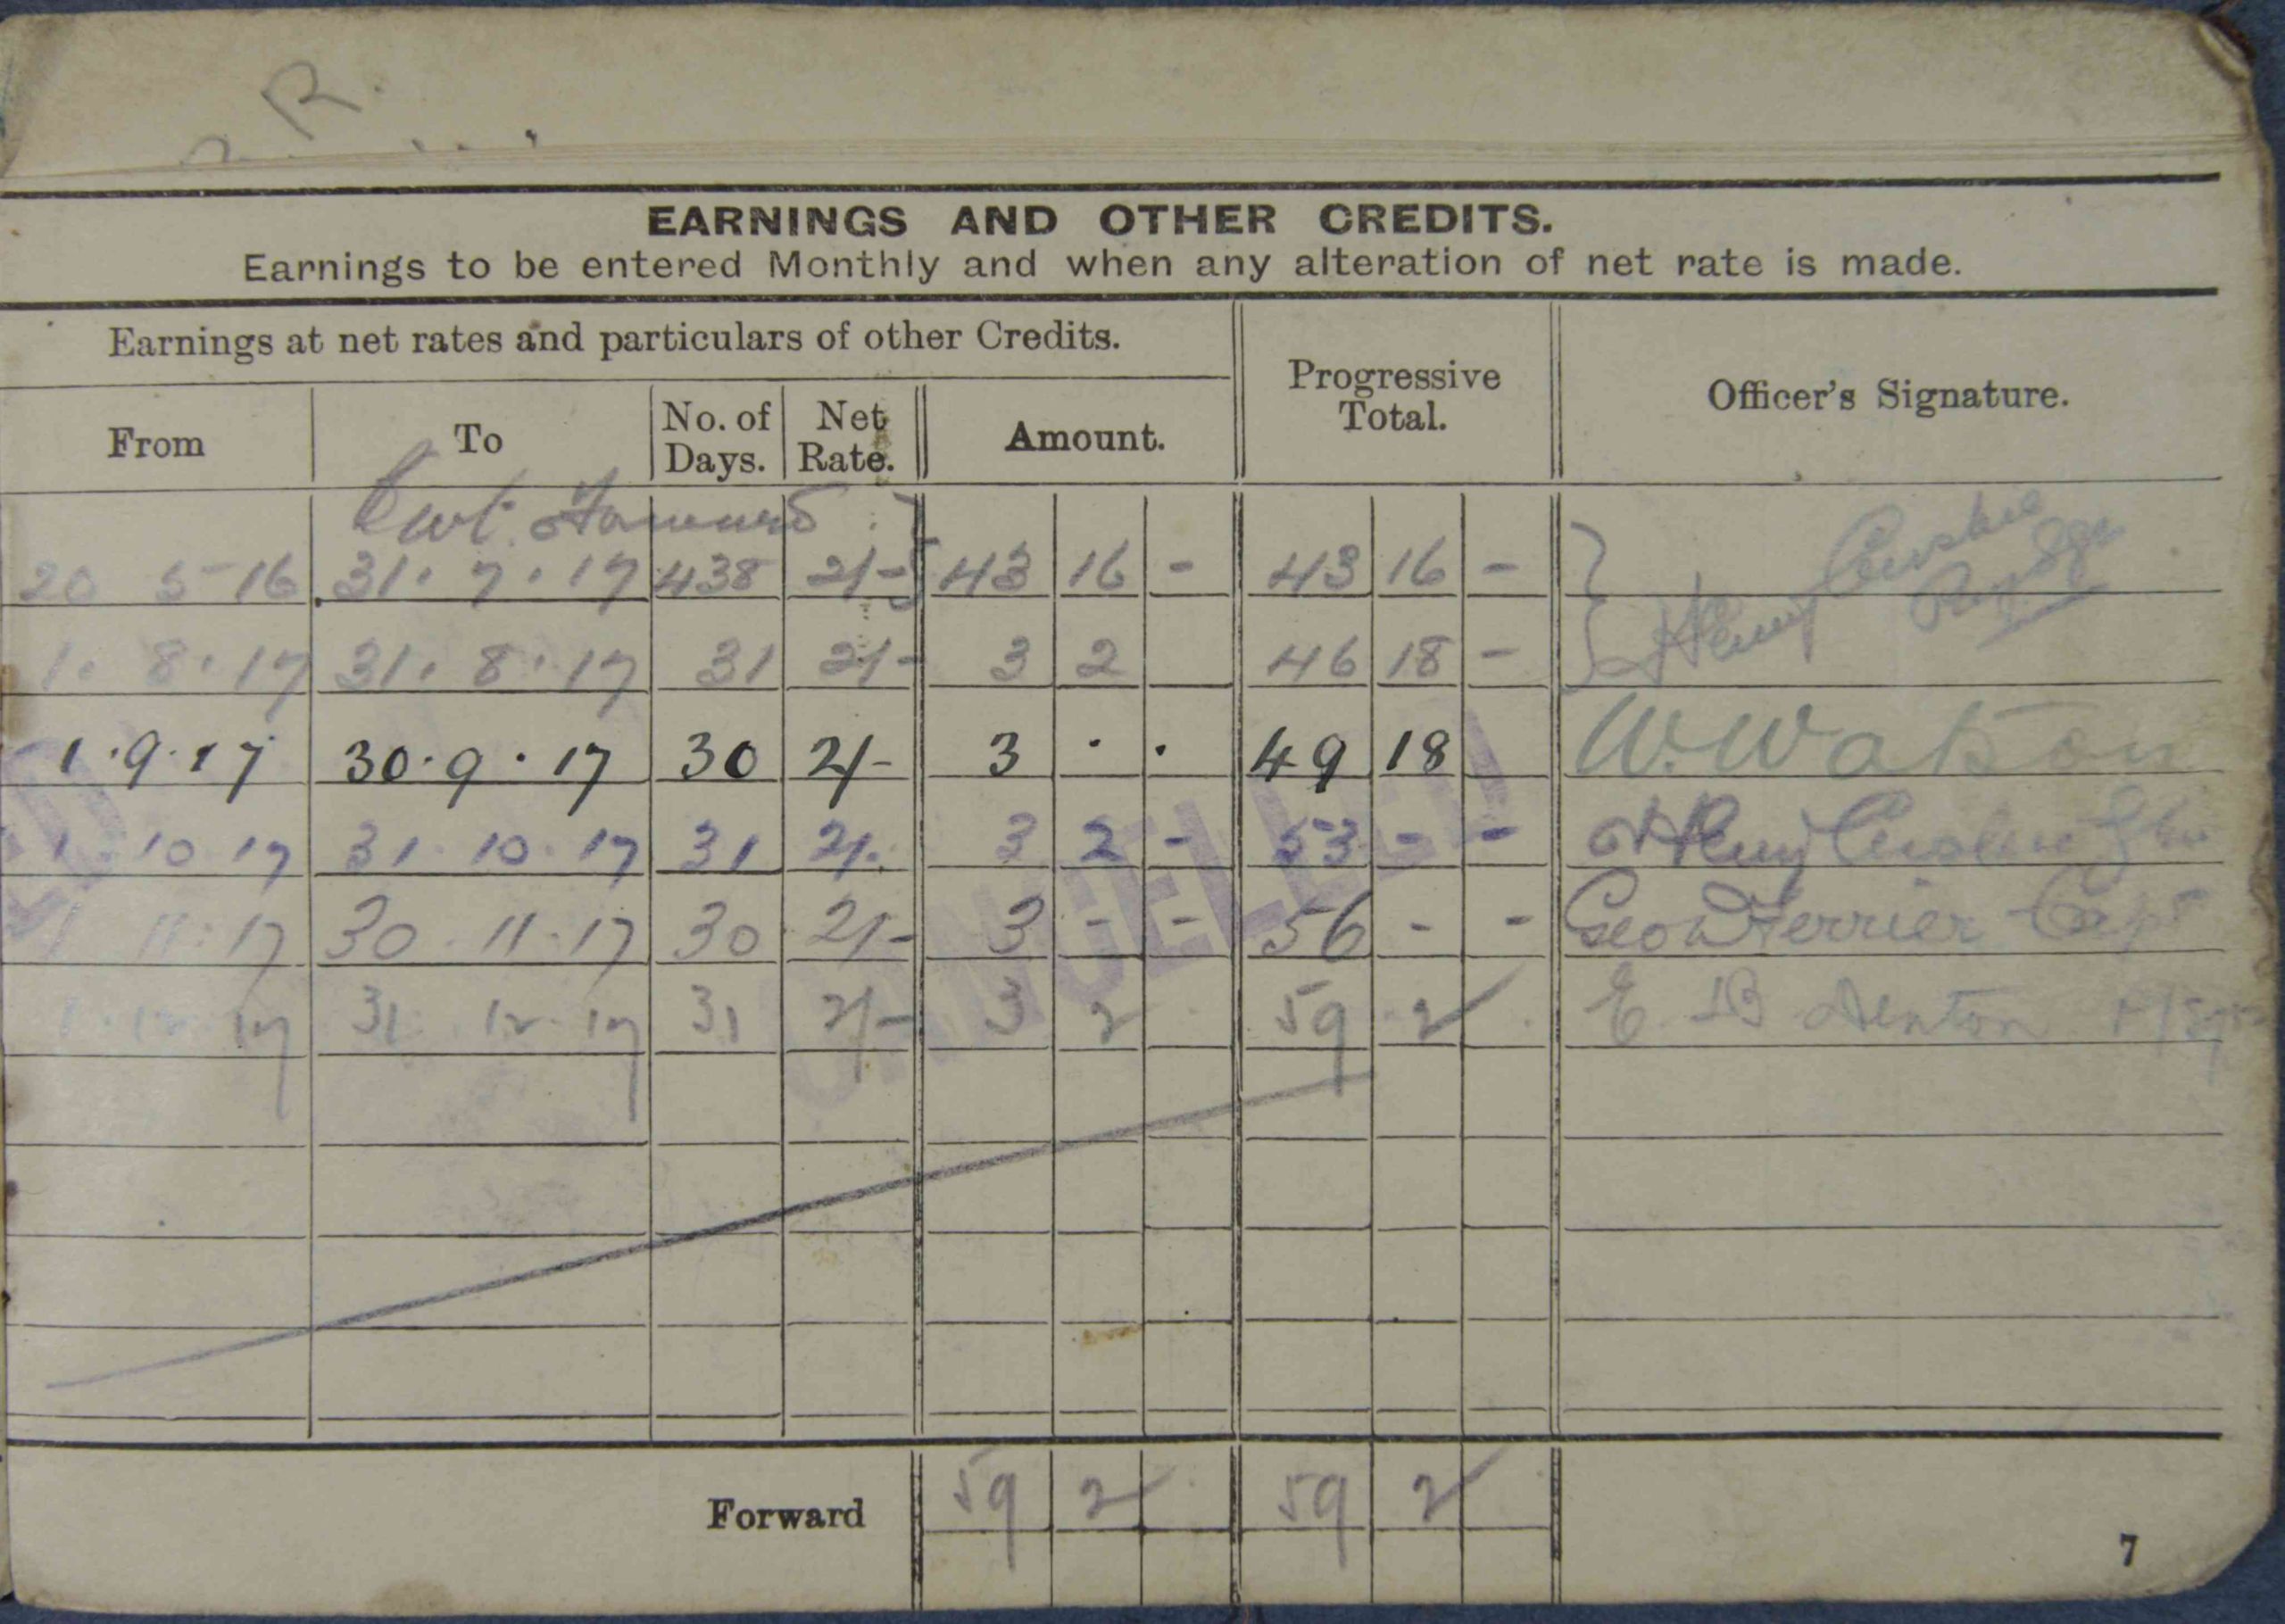 R.
EARNINGS AND OTHER CREDITS.
Earnings to be entered Monthly and when any alteration of net rate is made.
Earnings at net rates and particulars of other Credits.
Progressive Total.
Officer's Signature.
From To No. of Days. Net Rate. Amount.
Forward
20 5 16 31. 7. 17 438 2/- 43 16 - 43 16 -
Henry
1. 8. 17 31. 8. 17 31 2/- 3 2 46 18 -
1.9.17 30.9.17 30 2/- 3 . . 49 18 W. Watson
1. 10 17 31. 10. 17 31 2/. 3 2 - 53 - - Henry
1 11. 17 30. 11. 17 30 2/- 3 - - 56 - - Geo W Ferrier Capt
1. 12. 17 31. 12. 17 31 2/- 3 2 59 2 E B Denton
CANCELLED
Forward 59 2 59 2
7